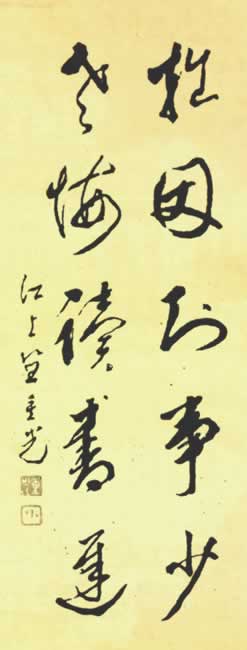 拙因知事少
老悔讀書遲
江上笪重光